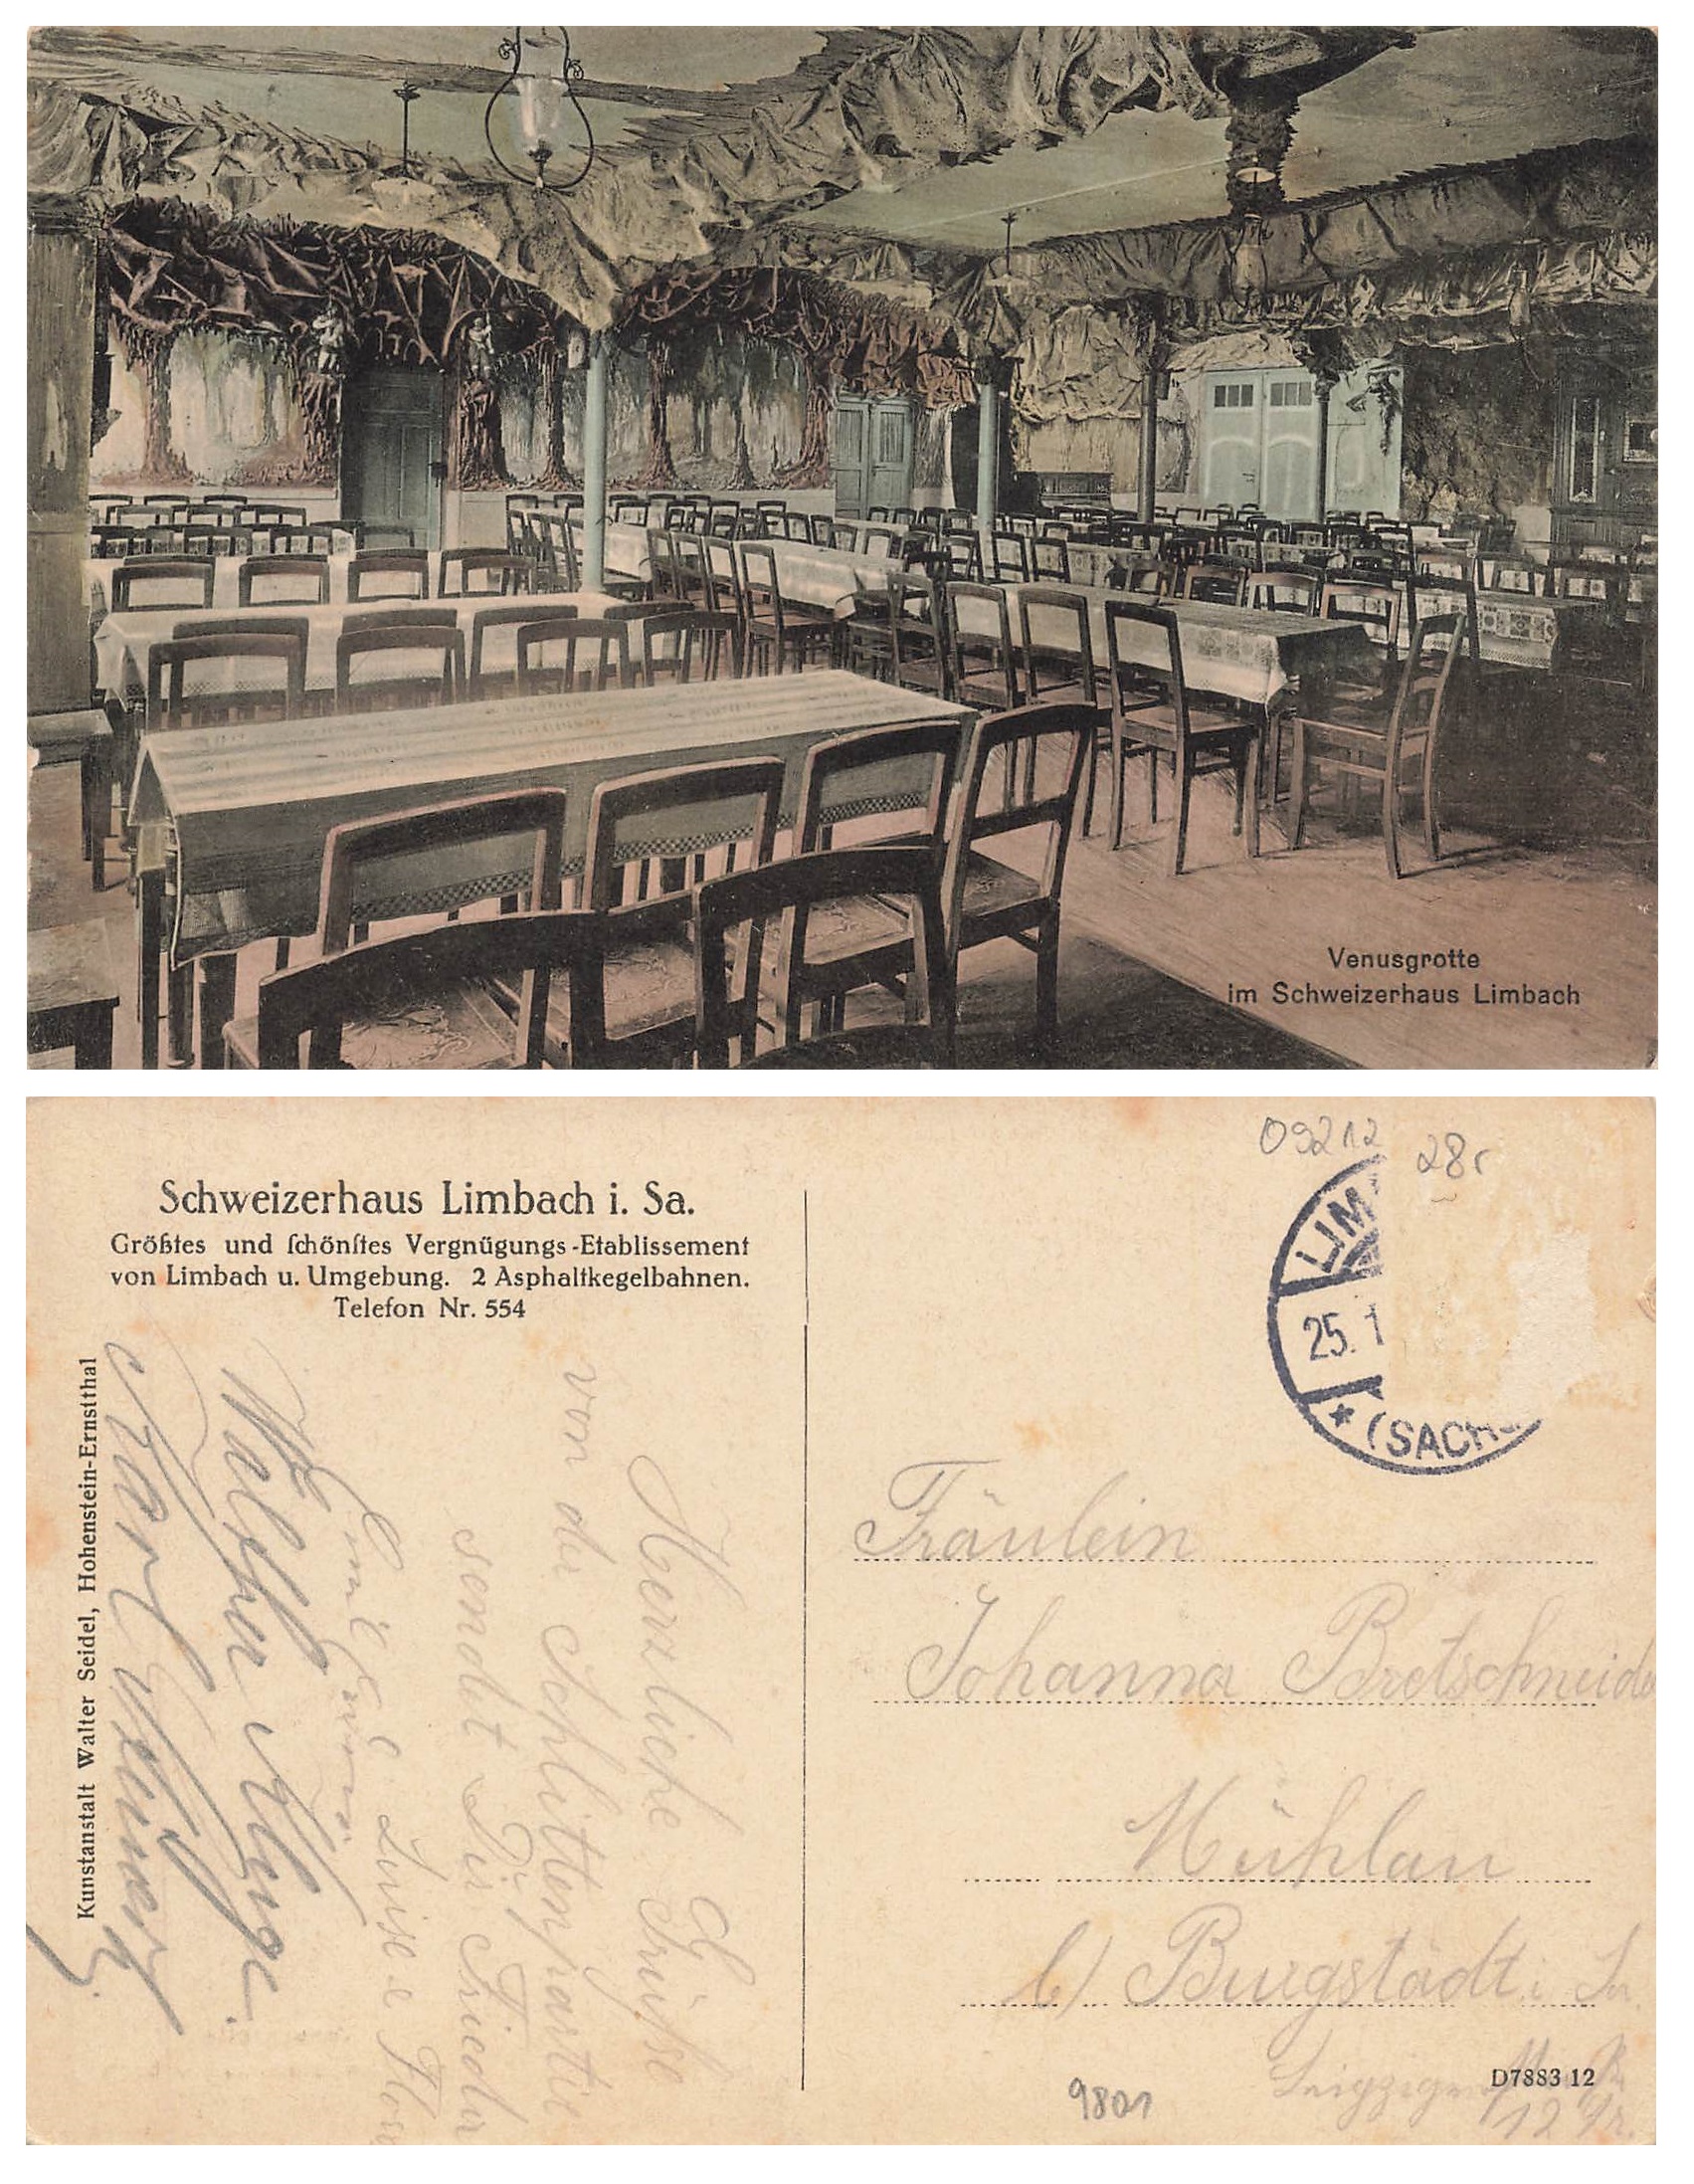 Venusgrotte
im Schweizerhaus Limbach
09212
28r
Schweizerhaus Limbach i. Sa.
Größtes und schönstes Vergnügungs-Etablissement
von Limbach u. Umgebung. 2 Asphaltkegelbahnen.
Telefon Nr. 554
Kunstanstalt Walter Seidel, Hohenstein-Ernstthal
LIM
25. 1
* (SACHS
Herzliche Grüsse
von der Schlittenpartie
sendet Dir Frieda
Luise
Walther Kluge.
Karl
Fräulein
Johanna Bretschneider
Mühlau
b/ Burgstädt i Sa.
Leipziger
12
D7883 12
9801